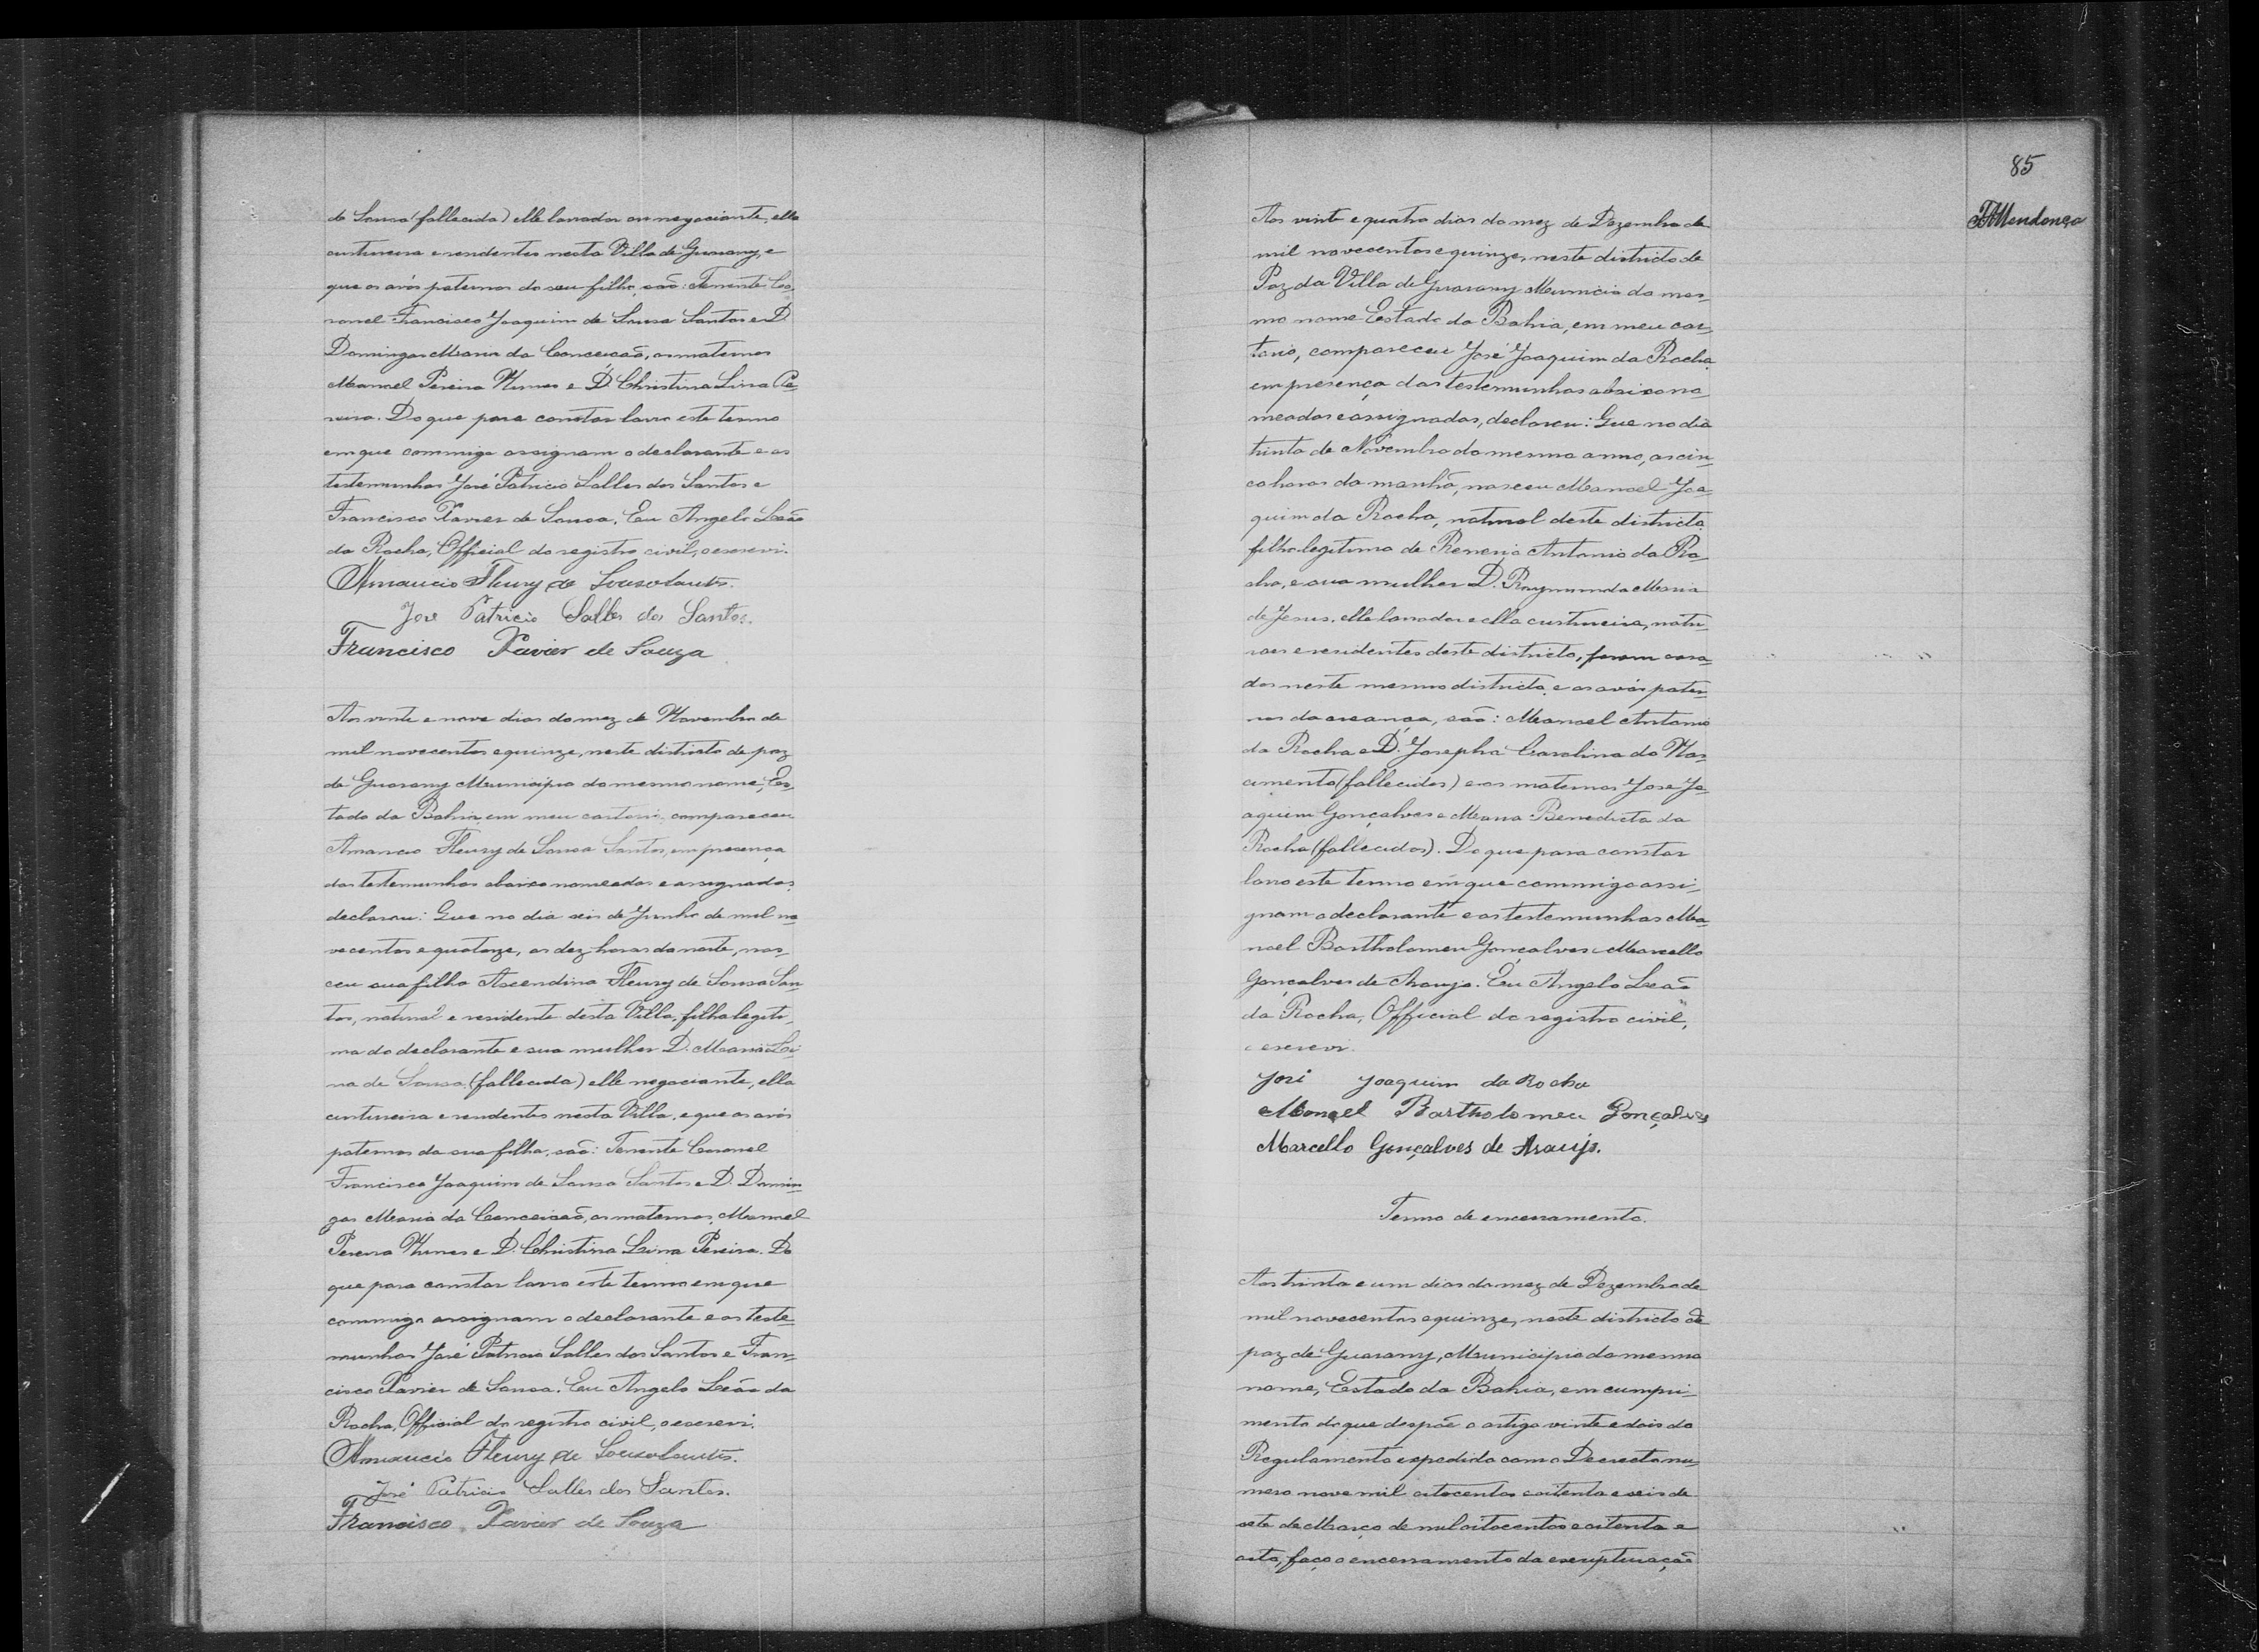 de Sousa (fallecida) elle lavrador ou negociante, ella
custureira e residentes nesta Villa de Guarany, e
que os avós paternos do seu filho, são: Tenente Co-
ronel Francisco Joaquim de Sousa Santos e D.
Domingas Maria da Conceicão, os maternos
Manoel Pereira Nunes e D. Christina Lina Pe-
reira. Do que para constar lavro este termo
em que commigo assignam o declarante e as
testemunhas José Patricio Salles dos Santos e
Francisco Xavier de Sousa. Eu Angelo Leão
da Rocha, Official do registro civil, o escrevi.
Amancio Fleury de Sousa Santos.
José Patricio Salles dos Santos.
Francisco Xavier de Souza
Aos vinte e nove dias do mez de Novembro de
mil novecentos e quinze, neste districto de paz
de Guarany Municipio do mesmo nome, Es-
tado da Bahia em meu cartorio, compareceu
Amancio Fleury de Sousa Santos, em presença
das testemunhas abaixo nomeadas e assignadas,
declarou: Que no dia seis de Junho de mil no-
vecentos e quatorze, as dez horas da noite, nas-
ceu sua filha Ascendina Fleury de Sousa San-
tos, natural e residente desta Villa, filha legiti-
ma do declarante e sua mulher D. Maria Li-
na de Sousa (fallecida) elle negociante, ella
custureira e residentes nesta Villa, e que os avós
paternos da sua filha, são: Tenente Coronel
Francisco Joaquim de Sousa Santos e D. Domin-
gas Maria da Conceicão, os maternos, Manoel
Pereira Nunes e D. Christina Lina Pereira. Do
que para constar lavro este termo em que
commigo assignam o declarante e as teste-
munhas José Patricio Salles dos Santos e Fran-
cisco Xavier de Sousa. Eu Angelo Leão da
Rocha, Official do registro civil, o escrevi.
Amancio Fleury de Sousa Santos.
José Patricio Salles dos Santos.
Francisco Xavier de Souza
85
Mendonça
Aos vinte e quatro dias do mez de Dezembro de
mil novecentos e quinze, neste districto de
Paz da Villa de Guarany Municia do mes-
mo nome Estado da Bahia, em meu car-
torio, compareceu José Joaquim da Rocha
em presença das testemunhas abaixo no-
meadas e assignadas, declarou: Que no dia
trinta de Novembro do mesmo anno, as cin-
co horas da manhã, nasceu Manoel Joa-
quim da Rocha, natural deste districto,
filho legitimo de Renerio Antonio da Ro-
cha, e sua mulher D. Raymunda Maria
de Jesus, elle lavrador e ella custureira, natu-
raes e residentes deste districto, foram casa-
dos neste mesmo districto, e os avós pater-
nos da creança, são: Manoel Antonio
da Rocha e D. Josepha Carolina do Nas-
cimento (fallecidos) e os maternos José Jo-
aquim Gonçalves e Maria Benedicta da
Rocha (fallecidos). Do que para constar
lavro este termo em que commigo assi-
gnam o declarante e as testemunhas Ma-
noel Bartholomeu Gonçalves e Marcello
Gonçalves de Araujo. Eu Angelo Leão
da Rocha, Official do registro civil,
o escrevi.
José Joaquim da Rocha
Manoel Bartholomeu Gonçalves
Marcello Gonçalves de Araujo.
Termo de encerramento.
Aos trinta e um dias do mez de Dezembro de
mil novecentos e quinze, neste districto de
paz de Guarany, Municipio do mesmo
nome, Estado da Bahia, em cumpri-
mento do que despõe o artigo vinte e dois do
Regulamento expedido com o Decreto nu-
mero nove mil oitocentos e oitenta e seis de
sete de Março de mil oitocentos e oitenta e
oito, faço o encerramento da escripturação